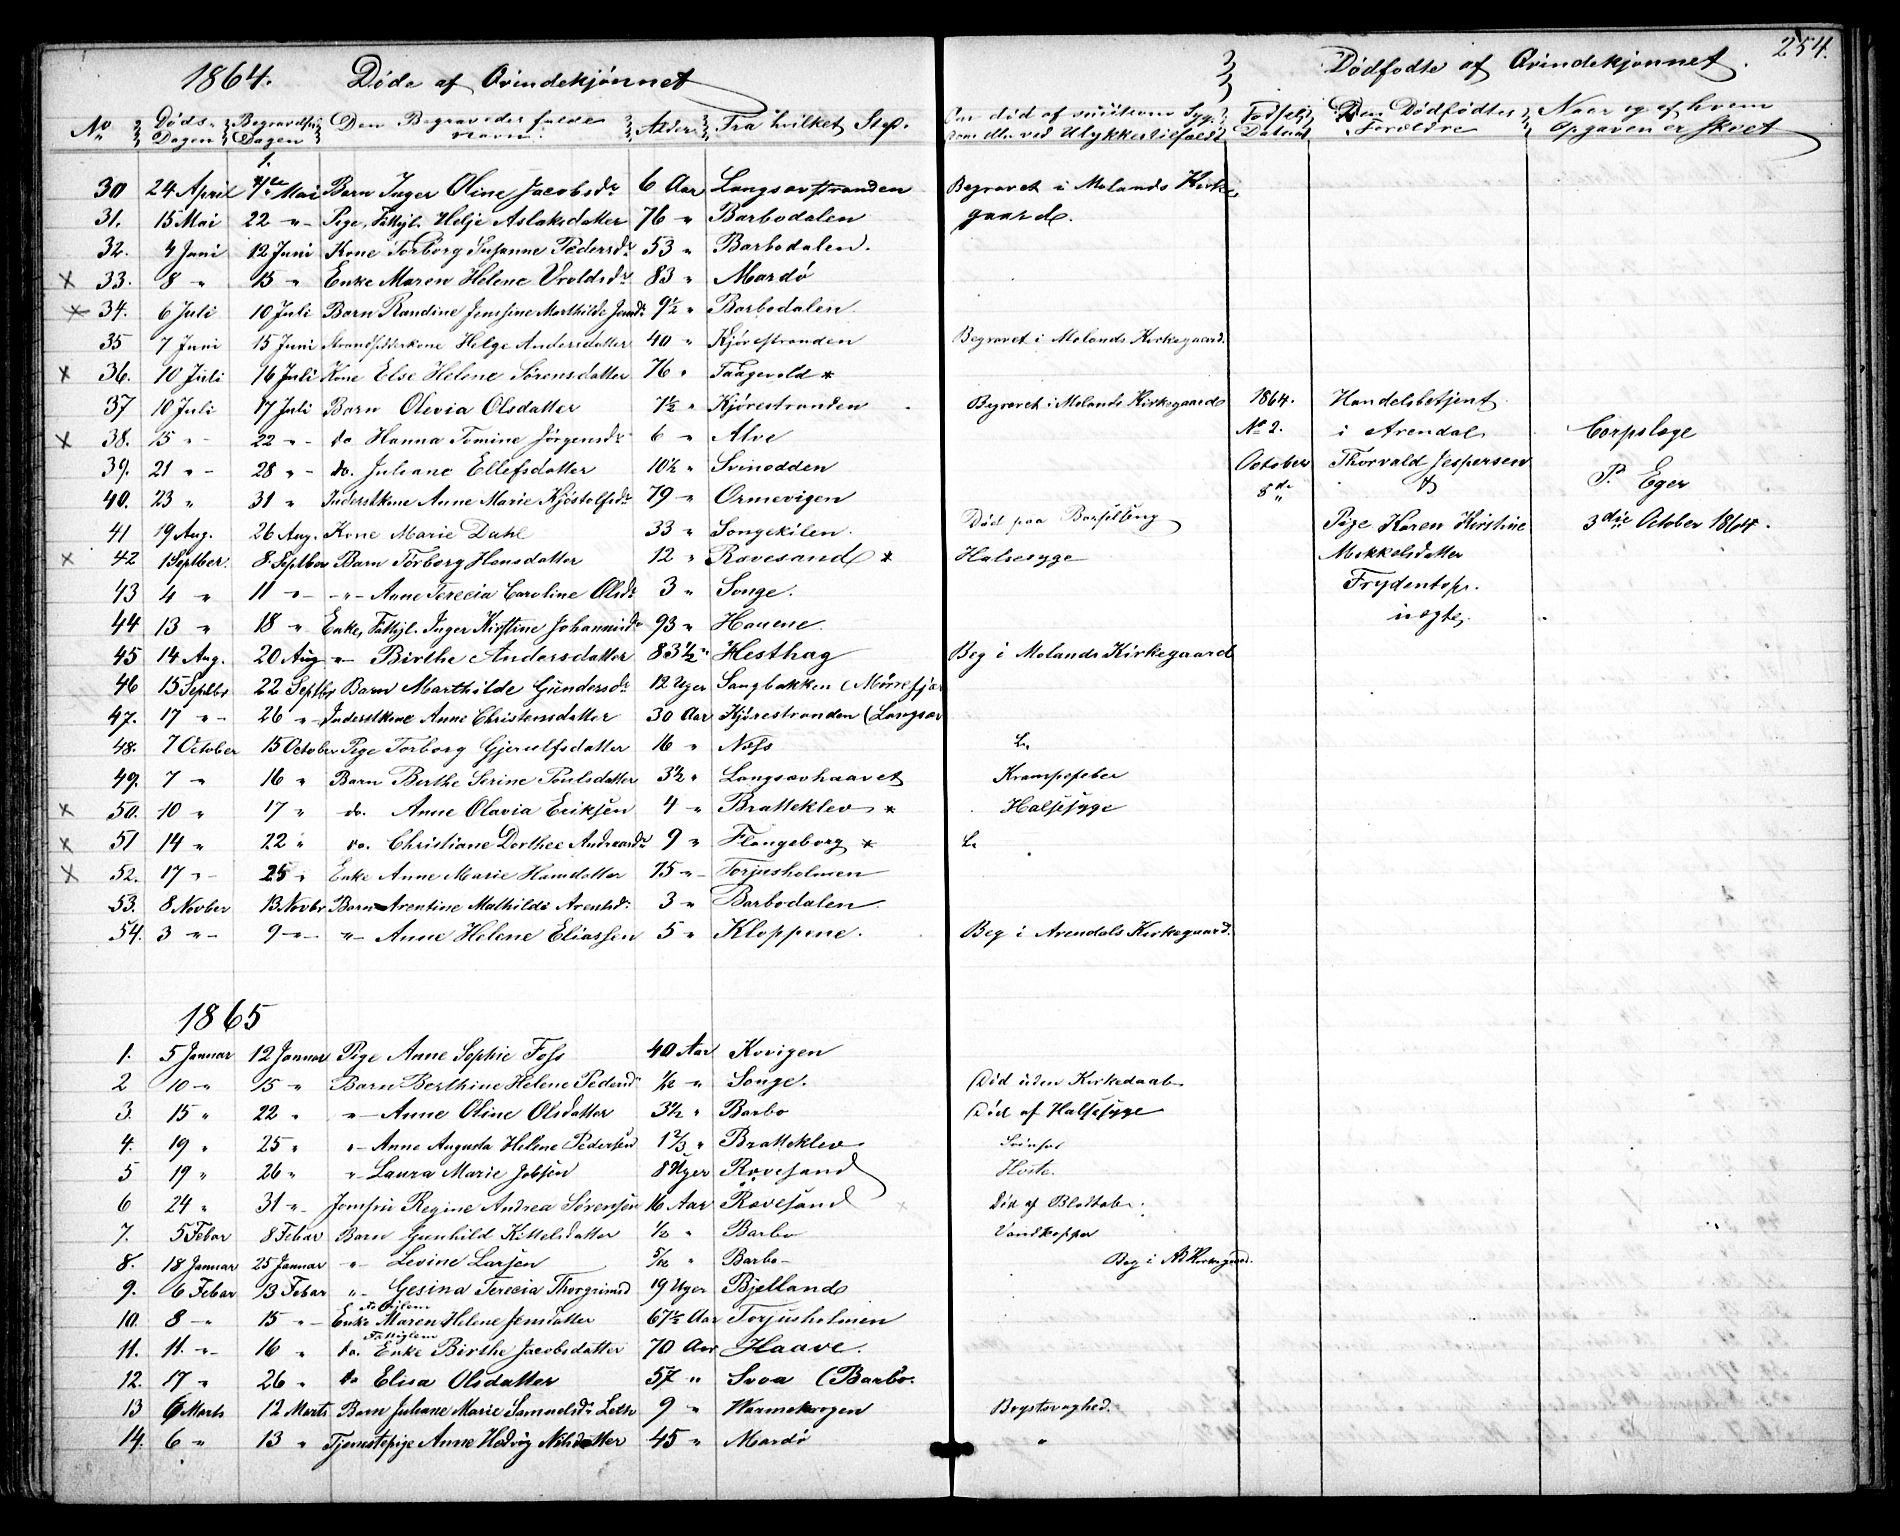 254.
1864. Døde af Qvindekjønnet
Dødfødte af Qvindekjønnet.
No Døds-Dagen Begravelses Dagen Den Begravedes fulde Navn Alder Fra hvilket Sted. Om død af smitsom Syg. som eller ved Ulykkestilfælde Fødsels Datum Den Dødfødtes Forældre Naar og af hvem Opgaven er skeet
30 24 April 1ste Mai Barn Inger Oline Jacobsdr 6 Aar Langsævstranden Begravet i Molands Kirke
31. 15 Mai 22 " Pige, Fattigl. Helje Aslaksdatter 76 " Barbodalen gaard.
32. 4 Juni 12 Juni Kone Torborg Susanne Pedersdr 53 " Barbodalen.
x 33. 8 " 15 " Enke Maren Helene Vroldsdr 83 " Mærdø
x 34. 6 Juli 10 Juli Barn Randine Jensine Marthilde Jensdr 9½ " Barbodalen.
35 7 Juni 15 Juni Strandsidderkone Helge Andersdatter 40 " Kjørestranden Begravet i Molands Kirkegaard.
x 36. 10 Juli 16 Juli Kone Else Helene Sørensdatter 76 "
37 10 Juli 17 Juli Barn Olevia Olsdatter 1½ " Kjørestranden Begravet i Molands Kirkegaard 1864. Handelsbetjent
x 38. 15 " 22 " do Hanna Tomine Jørgensdr 6 " Alve No 2. i Arendal Corpslæge
39. 21 " 28 " do. Juliane Ellefsdatter 10½ " Svinodden October Thorvald Jespersen P. Eger
40. 23 " 31 " Inderstkone Anne Marie Kjøstolfsdr 79 " Ormevigen 5de " &
41 19 Aug. 26 Aug. Kone Marie Dahl 33 " Songekilen. Død paa Barselseng Pige Karen Kirstine 3die October 1864.
x 42 1 Septber. 8 Septber Barn Torborg Hansdatter 12 " Rævesand * Halsesyge Mekkelsdatter
43 4 " 11 " " Anne Terecia Caroline Olsdr 3 " Songe. Frydentopp.
44 13 " 18 " Enke, Fattigl. Inger Kirstine Johannesdr 93 " Hauene. uægte.
45 14 Aug. 20 Aug " Birthe Andersdatter 83½ " Hesthag Beg i Molands Kirkegaard
46 15 Septbr 22 Septbr Barn Marthilde Gundersdr 12 Uger Sangbakken (Mørefjær
47. 17 " 26 " Inderstkone Anne Christensdatter 30 Aar Kjørestranden (Langsæv
48. 7 October 15 October Pige Torborg Gjerulfsdatter 16 " Næss
49. 7 " 16 " Barn Berthe Serine Poulsdatter 3½ " Langsævhaavet Krampefeber
x 50. 10 " 17 " do. Anne Olavia Eriksen 4 " Bratteklev * Halsesyge
x 51 14 " 22 " do. Christiane Dorthee 9 " Flangeborg *
x 52. 17 " 25 " Enke Anne Marie Hansdatter 75 " Torjusholmen
53. 8 Novber 13 Novbr Barn Arentine Mathilde Arentsdr 3 " Barbodalen.
54. 3 " 9 " " Anne Helene Eliassen 5 " Kloppene. Beg i Arendals Kirkegaard.
1865
1. 5 Januar 12 Januar Pige Anne Sophie Foss 40 Aar Kvvigen
2 10 " 15 " Barn Berthine Helene Pedersdr 1/12 " Songe. Død uden Kirkedaab
3. 15 " 22 " " Anne Oline Olsdatter 3½ " Barbo Død af Halsesyge
4. 19 " 25 " " Anne Augusta Helene Pedersen 1 2/3 " Bratteklev
5 19 " 26 " " Laura Marie Jobsen 8 Uger Rævesand Hoste.
6 24 " 31 " Jomfru Regine Andrea Sørensen 16 Aar Rævesand Død af Blodtab.
7. 5 Febar 8 Febar Barn Gunhild Kittelsdatter ½ " Barbo Vandkopper
8. 18 Januar 25 Januar " Levine Larsen 5/12 " Barbo
9. 6 Febar 13 Febar " Gesina Terecia Thorgrimsd 19 Uger Bjelland
10. 8 " 15 " Enke Fattiglem Maren Helene Jensdatter 67½ Aar Torjusholmen
11. 11. " 16 " do. Fattiglem Enke Birthe Jacobsdatter 70 Aar Haave.
12. 17 " 26 " do Elisa Olsdatter 57 " Svoa (Barbo.
13 6 Marts 12 Marts Barn Juliane Marie Samuelsdr Leth 9 " Warmekrogen Brystsvaghed.
14. 6 " 13 " Tjenestepige Anne Hedvig Nilsdatter 45 " Mærdø "